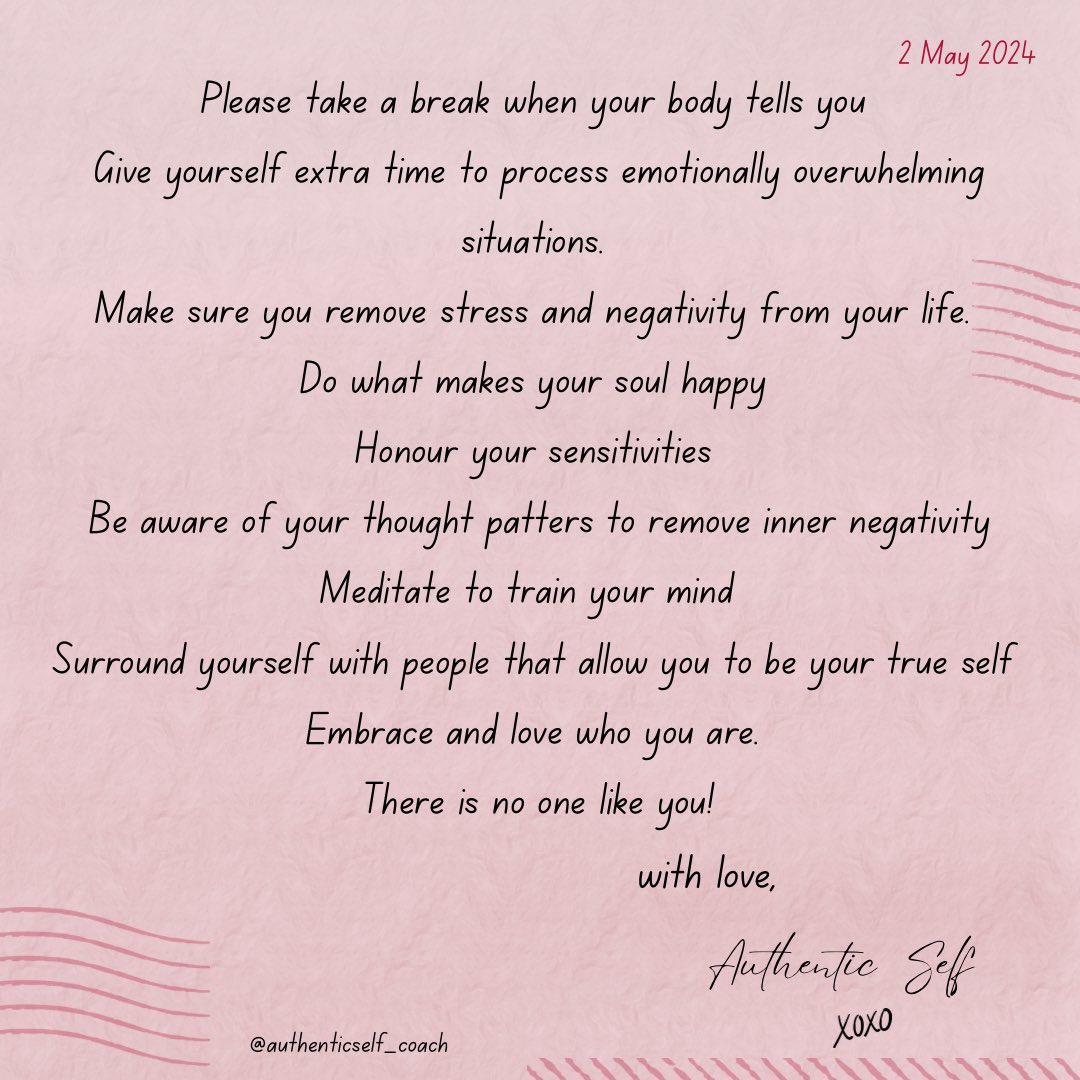 2 May 2024
Please take a break when your body tells you
Give yourself extra time to process emotionally overwhelming
situations.
Make sure you remove stress and negativity from your life.
Do what makes your soul happy
Honour your sensitivities
Be aware of your thought patters to remove inner negativity
Meditate to train your mind
Surround yourself with people that allow you to be your true self
Embrace and love who you are.
There is no one like you!
with love,
Authentic Self
xoxo
@authenticself_coach